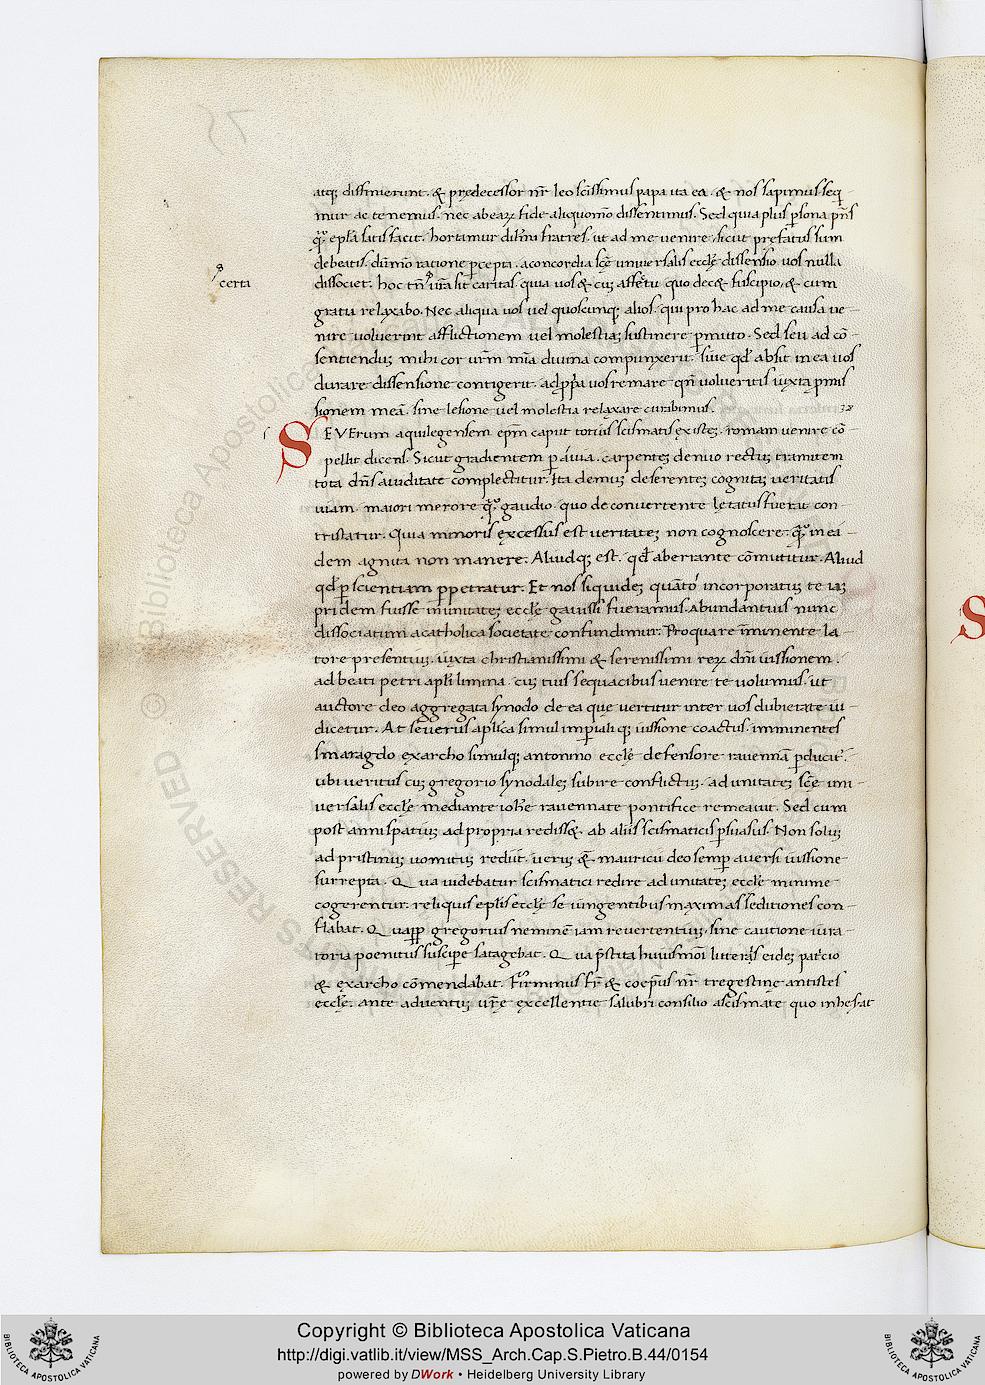 atq; diffinierunt. & prędecessor nr̄ leo sc̄issimus papa ita ea. & nos sapimus seq̄
mur ac tenemus. nec ab eaꝝ fide aliquom̄o dissentimus. Sed quia plus ꝑsona p̄ns
q̄ȝ epl̄a satis facit. hortamur dil̄mi fratres. ut ad me venire. sicut pręfatus sum
debeatis. dūm̄o ratione ꝑcepta. a concordia sc̄ę universalis eccl̄ę dissensio vos nulla
dissociet. hoc tn̄ ur̄a sit caritas. quia vos & cū affectu quo decet suscipio, & cum
gratia relaxabo. Nec aliqua vos vel quoscunq; alios. qui pro hac ad me causa ve-
nire voluerint afflictionem vel molestiaȝ sustinere ꝑmitto. Sed seu ad cō-
sentienduȝ mihi cor vr̄m mīa divina compunxerit. sive qd̄ absit in ea vos
durare dissensione contigerit. ad ꝓpria vos remeare qn̄ volueritis iuxta ꝓmis
sionem meā. sine lesione vel molestia relaxare curabimus.
certa
SEVErum aquilegensem ep̄m caput totius scismatis existēs. romam venire cō
pellit dicens. Sicut gradientem ꝑ avia. carpenteȝ denuo rectuȝ tramitem
tota dn̄s aviditate complectitur. Ita demuȝ deserenteȝ cognitaȝ veritatis
viam. maiori merore q̄ȝ gaudio. quo de convertente lętatus fuerat con-
tristatur. Quia minoris excessus est veritateȝ non cognoscere. q̄ȝ in ea-
dem agnita non manere. Aliudq; est. qd̄ ab errante cōmittitur. Aliud
qd̄ ꝑ scientiam ꝑpetratur. Et nos siquideȝ quāto incorporatuȝ te iaȝ
pridem fuisse in unitateȝ eccl̄ę gavisi fueramus. abundantius nunc
dissociatum a catholica societate confundimur. Pro qua re īminente la-
tore presentiuȝ. iuxta christianissimi & serenissimi reꝝ dn̄i iussionem.
ad beati petri apl̄i limina. cuȝ tuis sequacibus venire te volumus. ut
auctore deo aggregata synodo de ea quę vertitur inter vos dubietate iu-
dicetur. At severus aplīca simul imꝑialiq; iussione coactus. imminentes
smaragdo exarcho simulq; antonino eccl̄ę defensore ravennā ꝑducit᷑.
ubi veritus cuȝ gregorio synodaleȝ subire conflictuȝ. ad unitateȝ sc̄ę uni
versalis eccl̄ę mediante ioh̄e ravennate pontifice remeavit. Sed cum
post anni spatiuȝ ad propria redisset. ab aliis scismaticis ꝑsuasus. Non soluȝ
ad pristinuȝ vomituȝ rediit. veruȝ & mauricii deo semꝑ aversi iussione
surrepta. Qua videbatur scismatici redire ad unitateȝ eccl̄ę minime
cogerentur. reliquis epl̄is eccl̄ę se iūngentibus maximas seditiones con-
flabat. Quaꝓꝑ gregorius neminē iam revertentiuȝ. sine cautione iura-
toria poenitus suscipe satagebat. Qua p̄stita huiusmōi litteras eideȝ patrīcio
& exarcho cōmendabat. Firminus fr̄ & coep̄us nr̄ tregestinę antistes
eccl̄ę. ante adventuȝ vr̄ę excellentię salubri consilio a scismate quo inheserat
Copyright © Biblioteca Apostolica Vaticana
http://digi.vatlib.it/view/MSS_Arch.Cap.S.Pietro.B.44/0154
powered by DWork • Heidelberg University Library